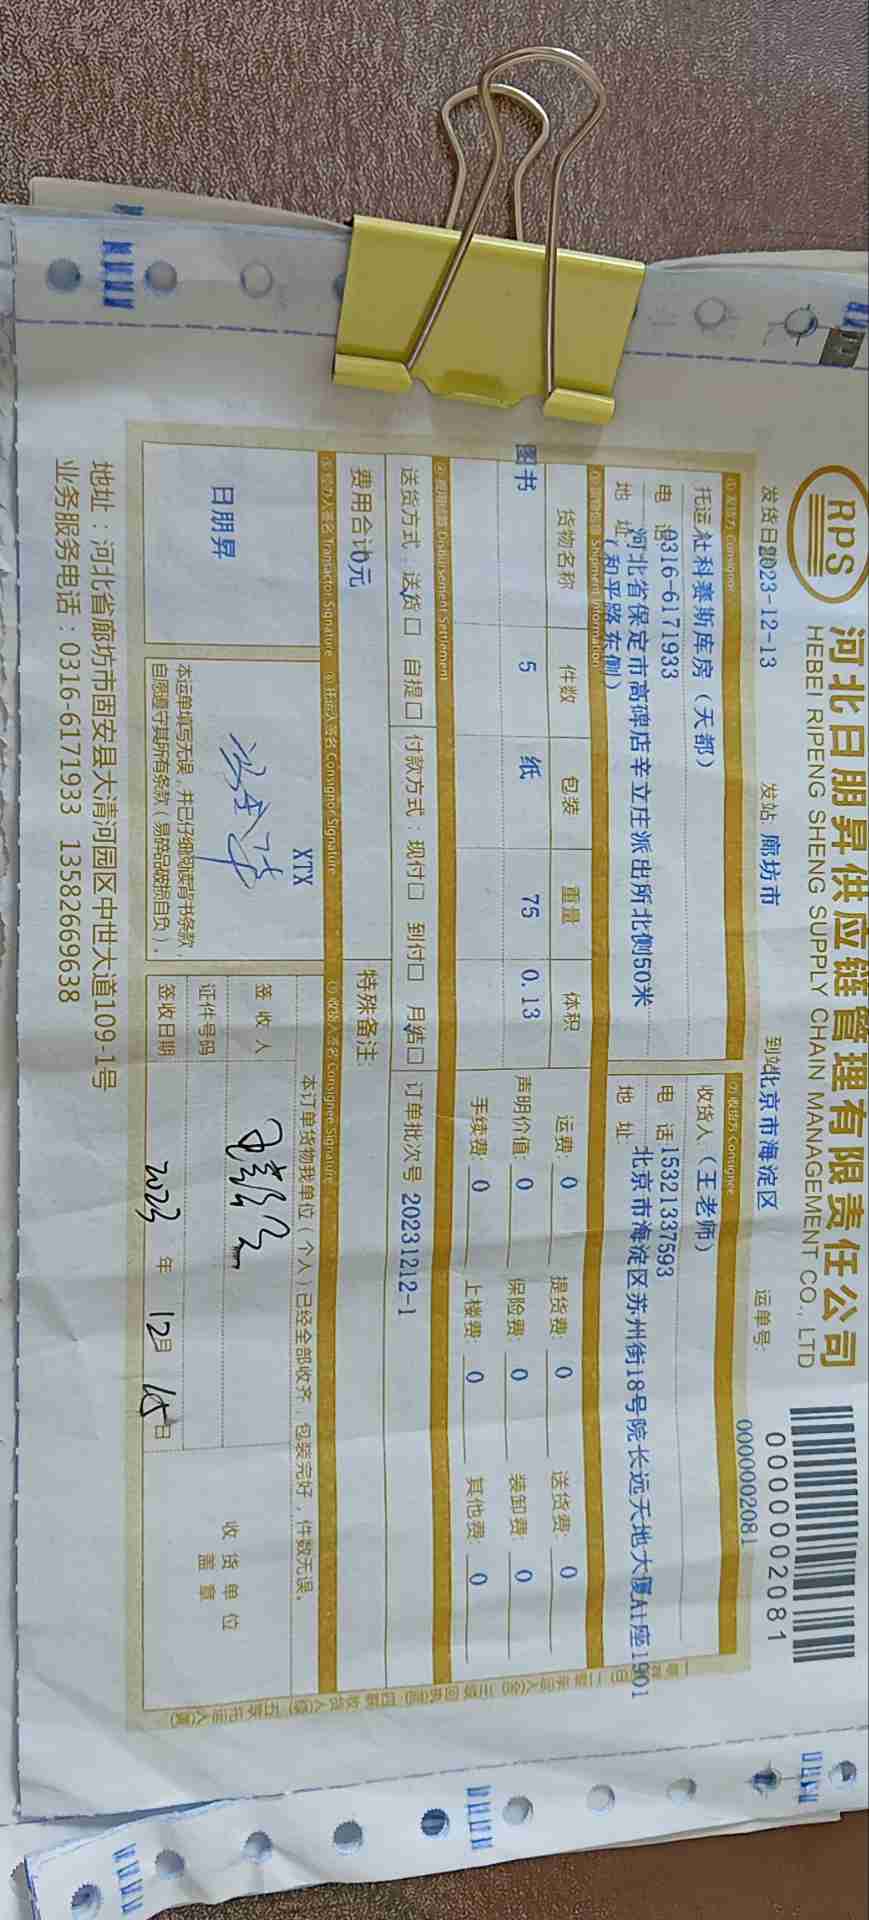 RPS
河北日朋昇供应链管理有限责任公司
HEBEI RIPENG SHENG SUPPLY CHAIN MANAGEMENT CO., LTD
0000002081
发货日2023-12-13 发站 廊坊市 到站北京市海淀区 运单号: 0000002081
①发货方 Consignor ②收货方 Consignee
托运 社科赛斯库房（天都） 收货人（王老师）
电 话 0316-6171933 电 话 15321337593
地 址 河北省保定市高碑店辛立庄派出所北侧50米（和平路东侧） 地 址 北京市海淀区苏州街18号院长远天地大厦A1座1901
Shipment Information
货物名称 件数 包装 重量 体积 运费: 0 提货费: 0 送货费: 0
图书 5 纸 75 0.13 声明价值: 0 保险费: 0 装卸费: 0
手续费: 0 上楼费: 0 其他费: 0
Disbursement Settlement
送货方式: 送货□ 自提□ 付款方式: 现付□ 到付□ 月结□ 订单批次号 20231212-1
费用合计0元 特殊备注:
Transactor Signature 托运人签名 Consignor Signature 收货人签名 Consignee Signature
日朋昇
XTX
本运单填写无误，并已仔细阅读背书条款，
自愿遵守其所有条款（易碎品破损自负）。
本订单货物我单位（个人）已经全部收齐，包装完好，件数无误。
签 收 人
证件号码
签收日期 2023 年 12月 15日
收货单位
盖 章
地址：河北省廊坊市固安县大清河园区中世大道109-1号
业务服务电话：0316-6171933 13582669638